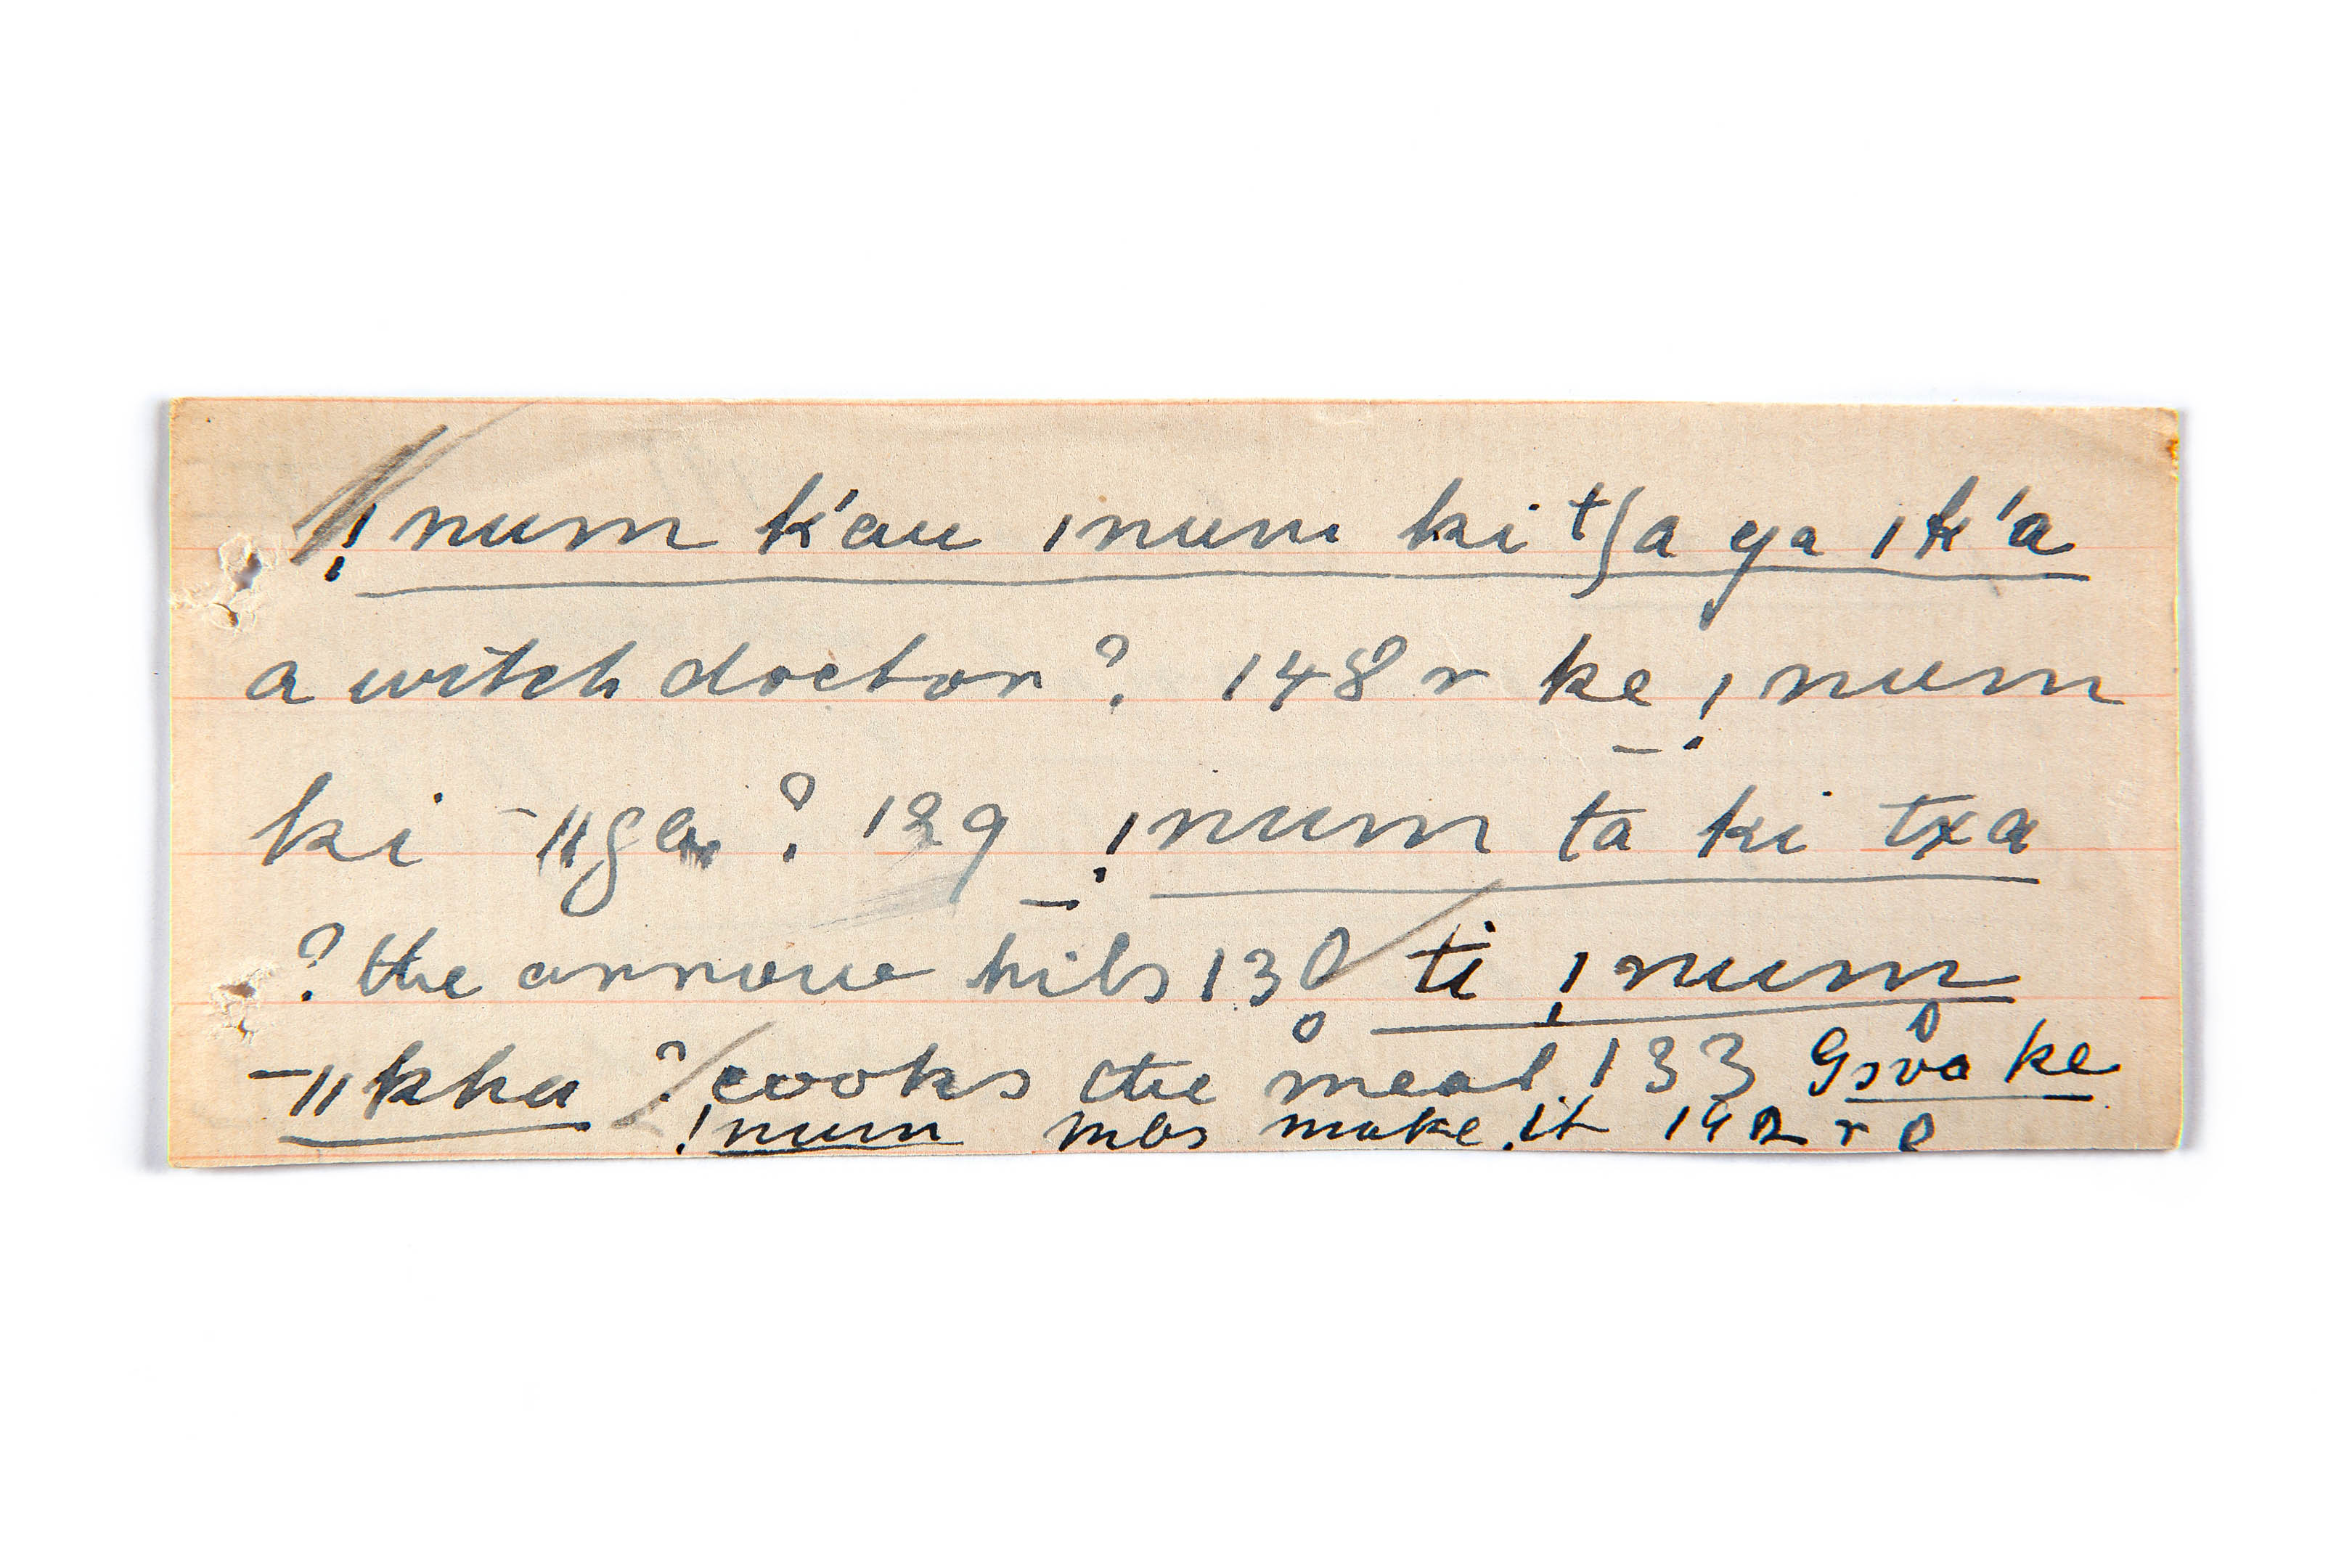 !num k'au ǀnum ki tʃa ya ǀk'a
a witch doctor ? 148 r ke !num
ki -ǁga ? 129 !num ta ki txa
? the arrow hits 130 ti !num
-ǁkha ? cooks the meal 133 ke
!num make it r